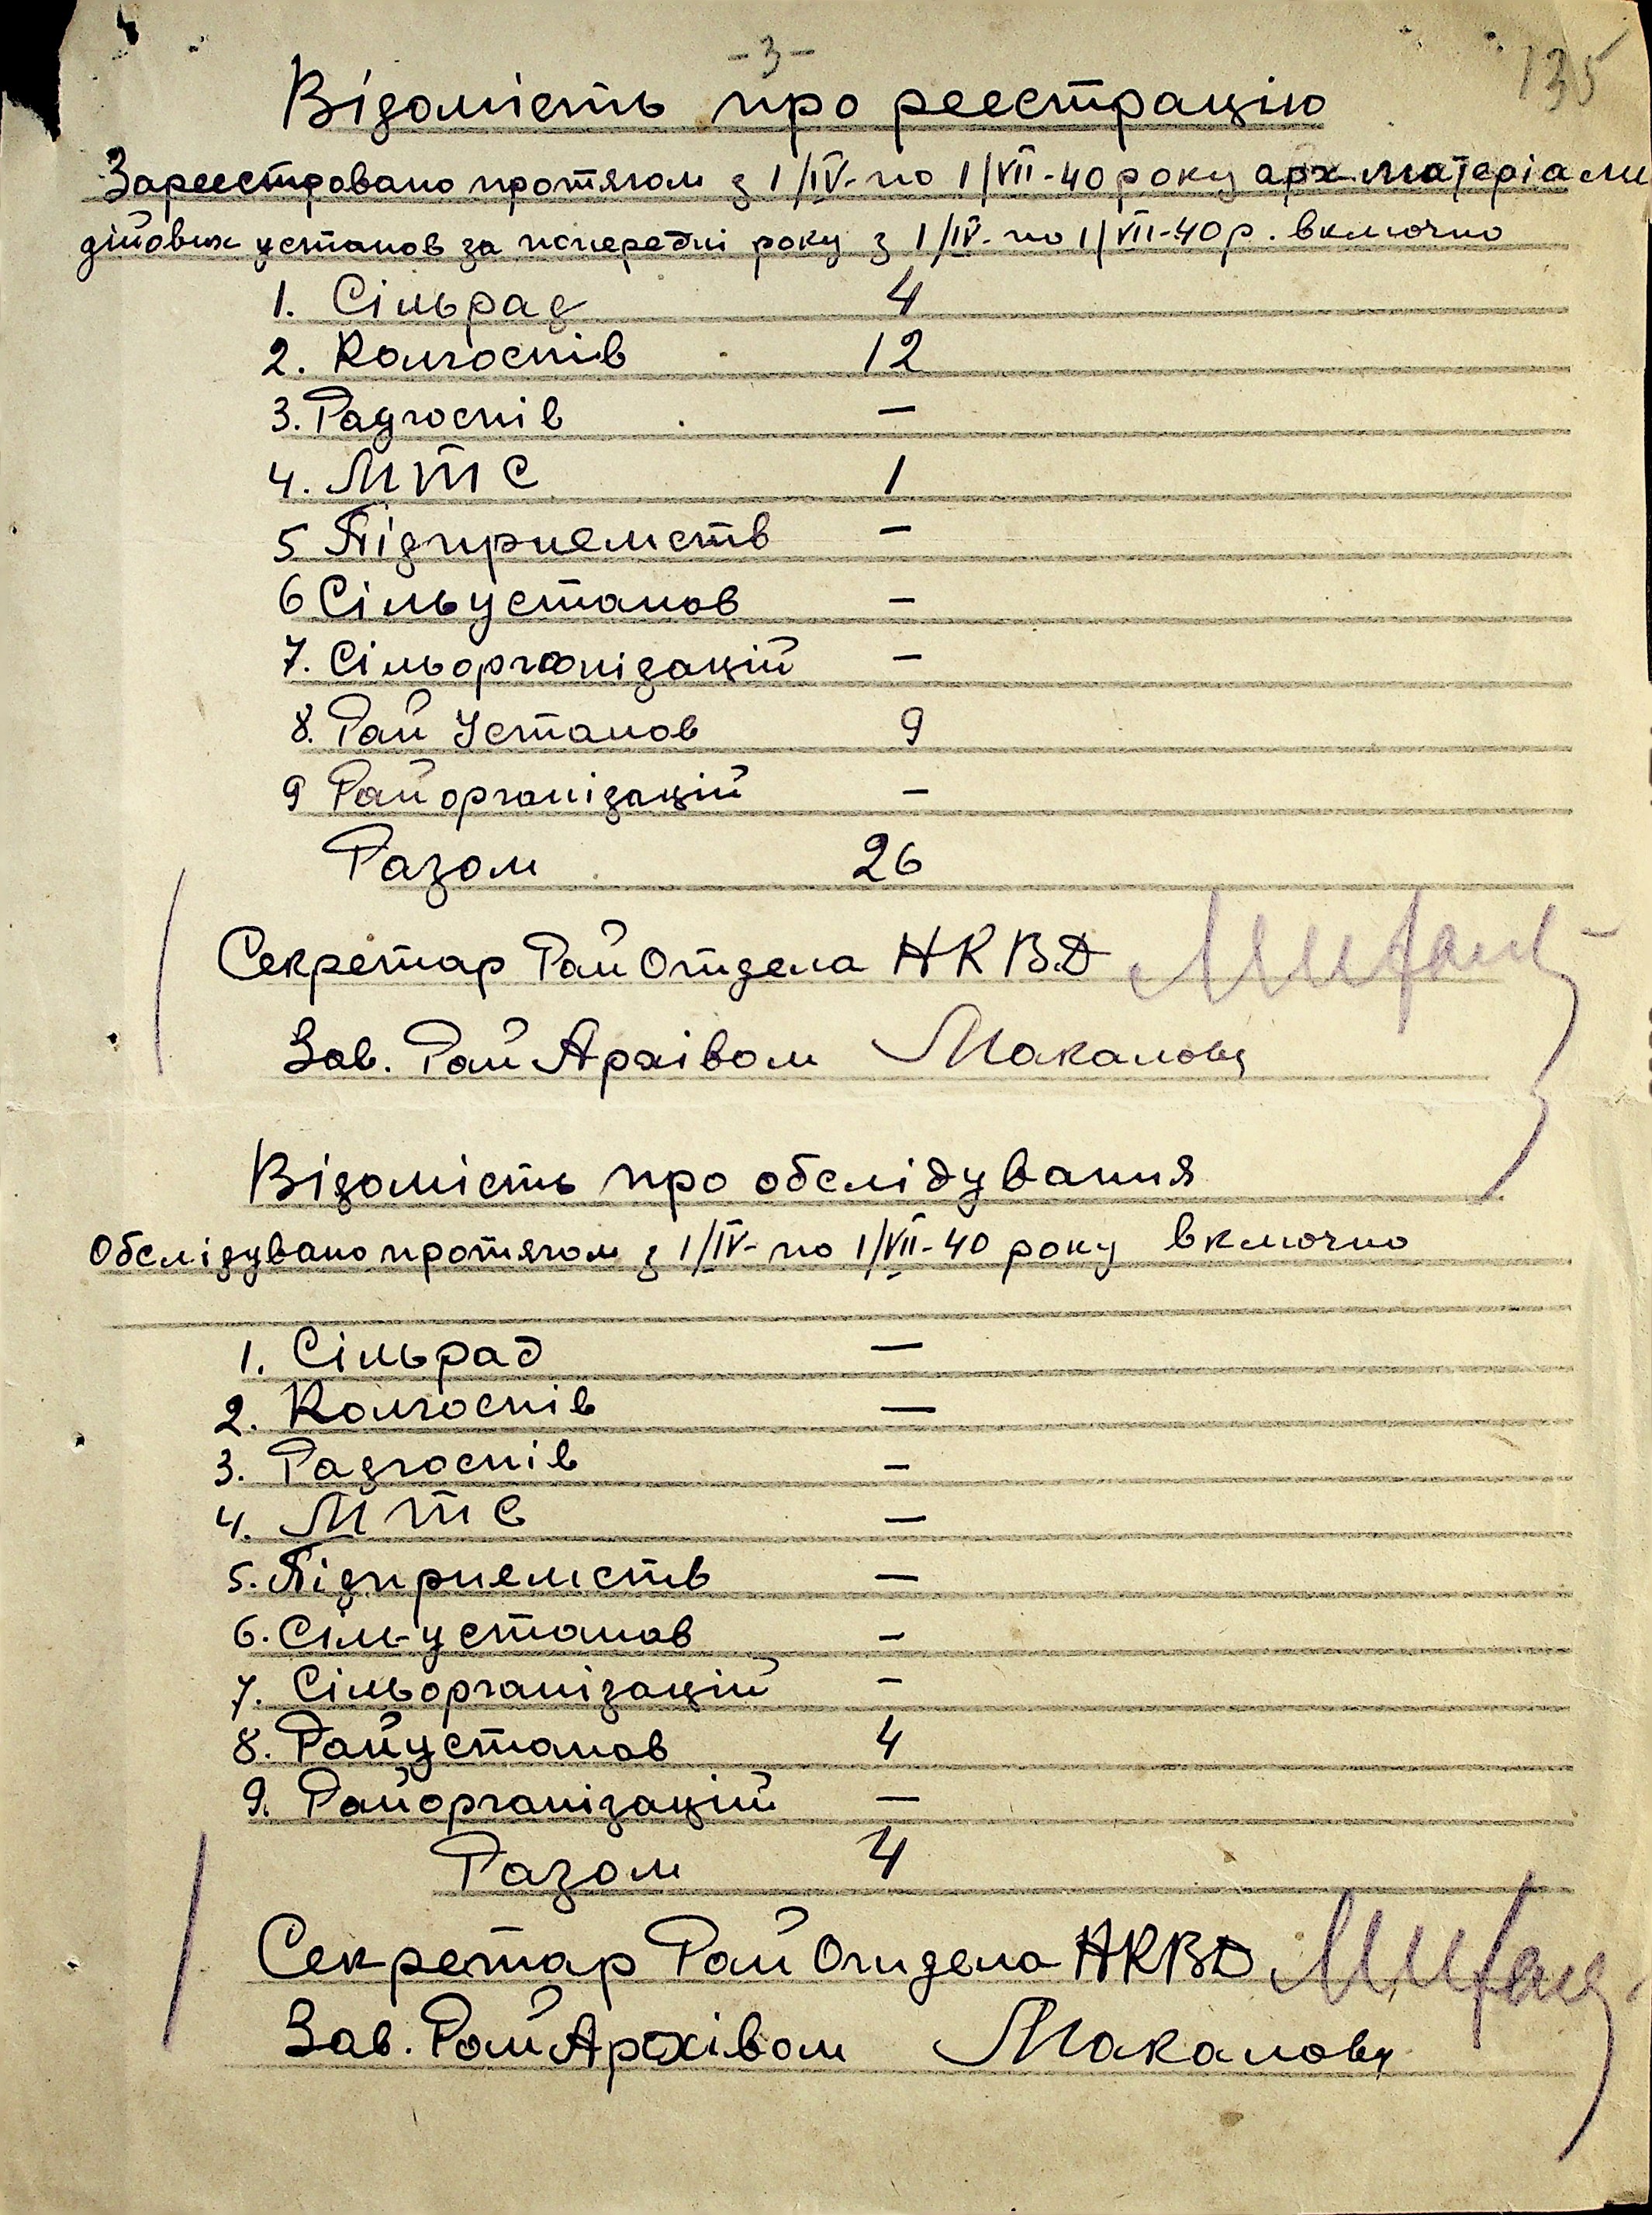 -3-
135
Відомість про реєстрацію
Зареєстровано протягом з 1/IV-по 1/VII-40 року арх матеріали
дійових установ за попередні року з 1/IV-по 1/VII-40 р. включно
1. Сільрад 4
2. Колгоспів 12
3. Радгоспів —
4. МТС 1
5 Підприємств —
6 Сільустанов —
7. Сільорганізацій —
8. Рай Установ 9
9 Райорганізацій —
Разом 26
Секретар Рай Отдела НКВД
Зав. Рай Архівом
Відомість про обслідування
Обслідувано протягом з 1/IV-по 1/VII-40 року включно
1. Сільрад —
2. Колгоспів —
3. Радгоспів —
4. МТС —
5. Підприємств —
6. Сіль-установ —
7. Сільорганізацій —
8. Райустанов 4
9. Райорганізацій —
Разом 4
Секретар Рай Отдела НКВД
Зав. Рай Архівом